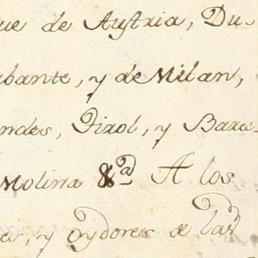 que de Austria, Du-
abante, y de Milan,
andes, Tirol, y Barce-
Molina &a. A los
a, y oydores de las